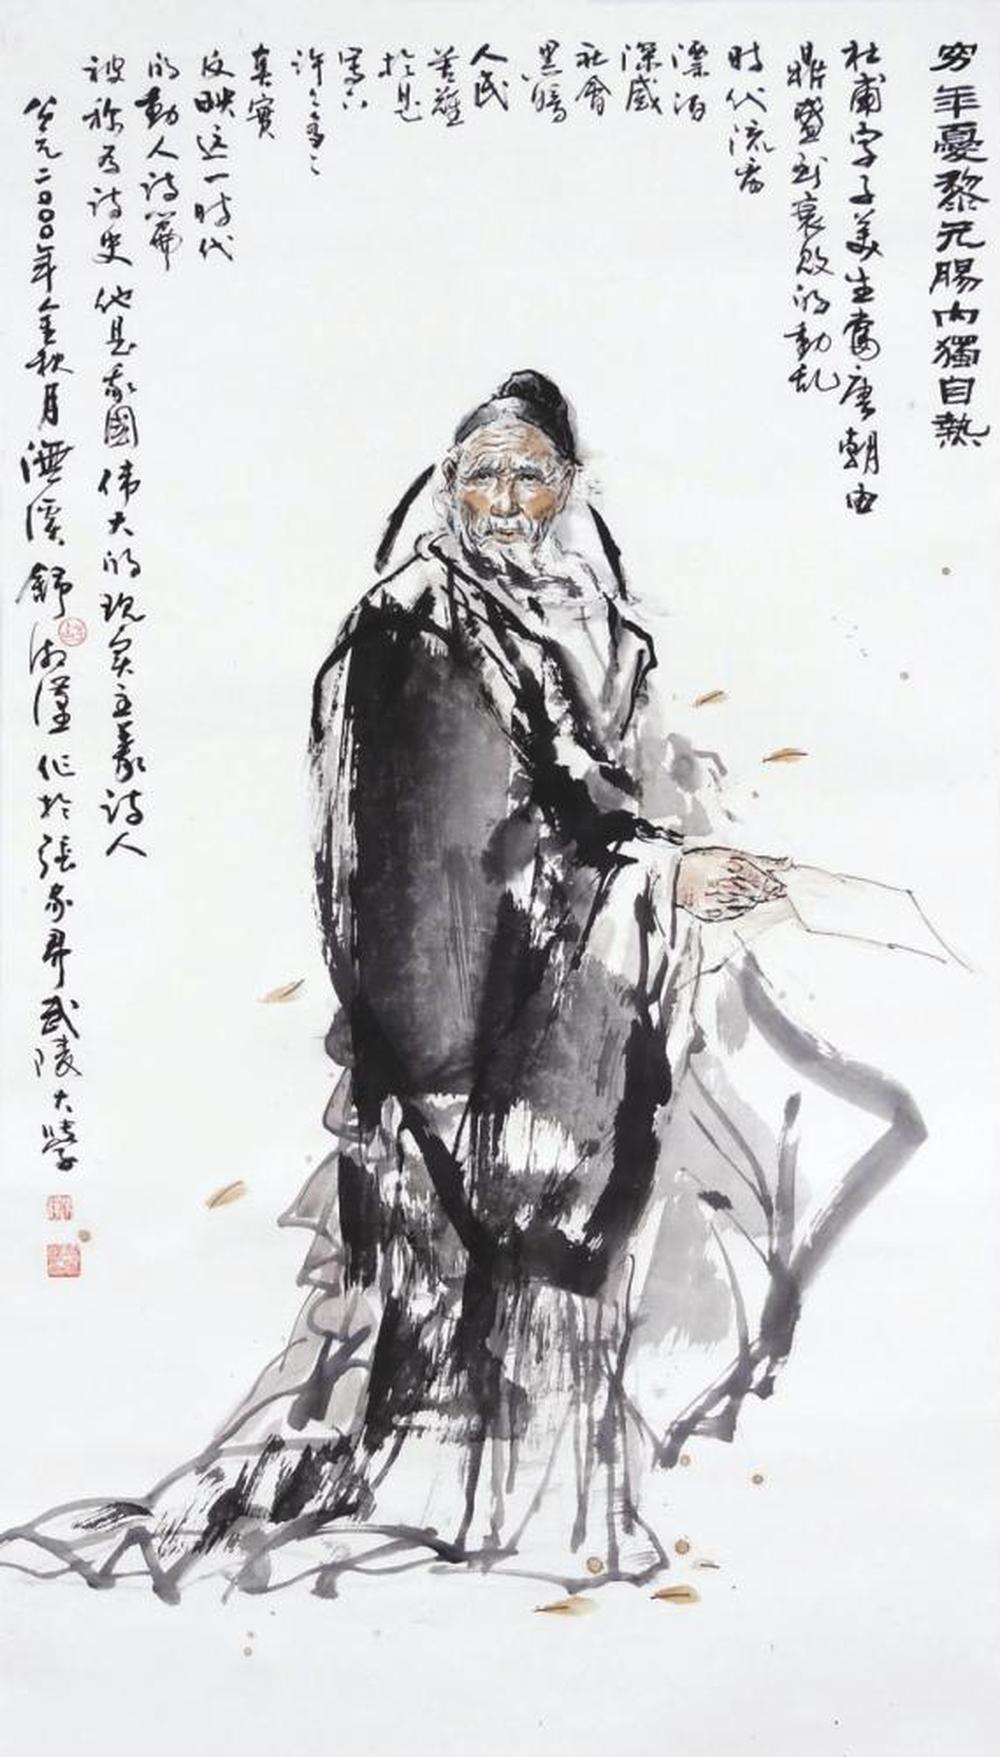 穷年憂黎元腸内獨自熱
杜甫字子美生當唐朝由
鼎盛到衰败的動乱
時代流离
漂泊
深感
社會
黑暗
人民
苦難
於是
寫下
許許多多
真實
反映这一時代
的動人詩篇
被称為詩史他是我國伟大的现实主義詩人
公元二000年金秋月澧溪舒湘漢作於張家界武陵大學